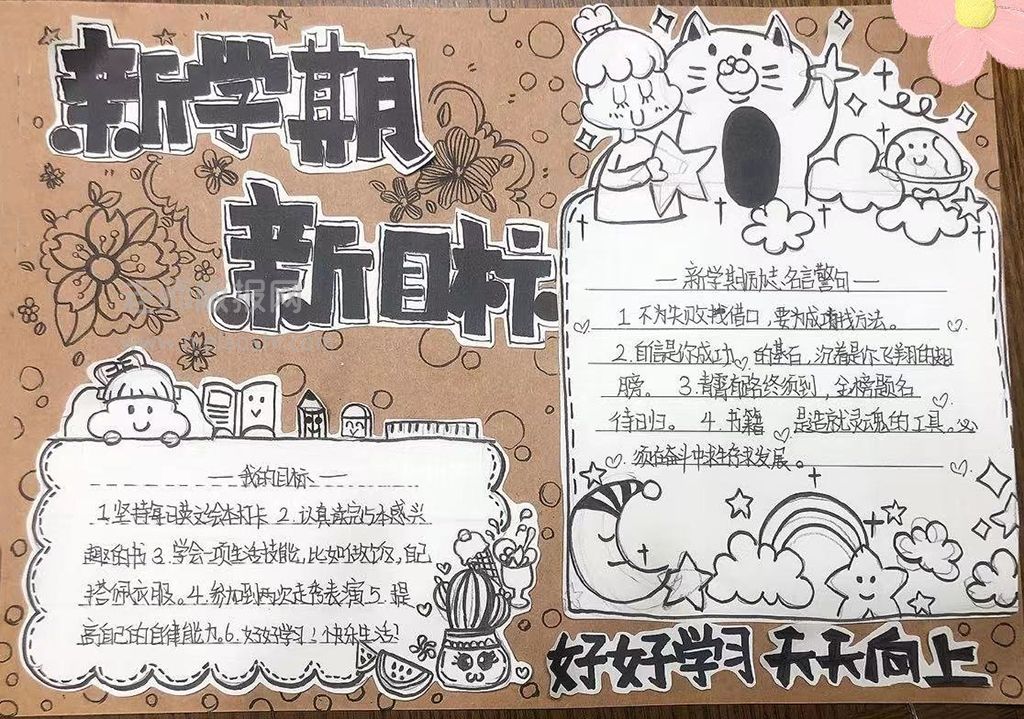 新学期
新目标
—新学期励志名言警句—
1 不为失败找借口，要为成功找方法。
2.自信是你成功的基石，沉着是你飞翔的翅
膀。 3.青霄有路终须到，金榜题名
待日归。 4.书籍 是造就灵魂的工具。
须在奋斗中求生存求发展。
—我的目标—
1.坚持每日英文绘本打卡 2.认真读完15本感兴
趣的书 3.学会一项生活技能，比如做饭，自己
搭佩衣服。4.参加到两次走秀表演 5.提
高自己的自律能力。6.好好学习！快乐生活！
好好学习 天天向上